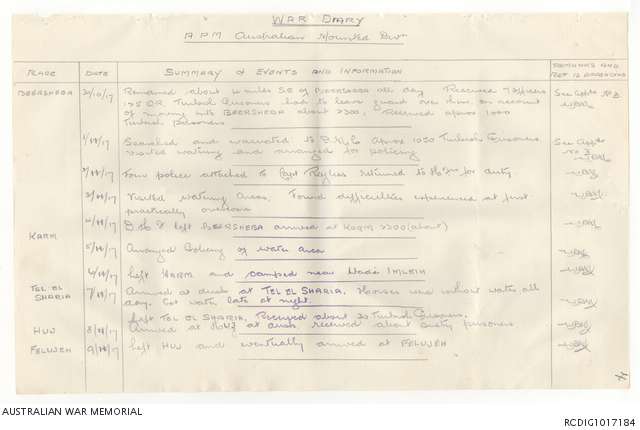 WAR DIARY
A.P.M. Australian Mounted Divn
PLACE DATE SUMMARY OF EVENTS AND INFORMATION REMARKS AND REF TO APPENDICES
BEERSHEBA 31/10/17 Remained about 4 miles S.E of BEERSHEBA all day Received 7 Officers See Appdx No 2
175 O.R. Turkish Prisoners had to leave guard over them on account
of moving into BEERSHEBA about 2300. Received aprox 1000
Turkish prisoners
1/11/17 Searched and evacuated to aprox 1050 Turkish Prisoners See Appdx No 3
visited watering and arranged for policing
2/11/17 Four police attached to Capt returned to for duty.
3/11/17 Visited watering Areas. Found difficulties experienced at first
practically overcome
KARM 4/11/17 left BEERSHEBA arrived at KARM 2200 (about)
5/11/17 Arranged Policing of water area
6/11/17 Left KARM and camped near Wadi IMLEIH
TEL EL SHARIA 7/11/17 Arrived at dusk at TEL EL SHARIA. Horses were without water all
day. Got water late at night.
Left TEL EL SHARIA. Received about 30 Turkish Prisoners.
HUJ 8/11/17 Arrived at HUJ at dusk received about sixty prisoners
FELUJEH 9/11/17 Left HUJ and eventually arrived at FELUJEH
AUSTRALIAN WAR MEMORIAL
RCDIG1017184